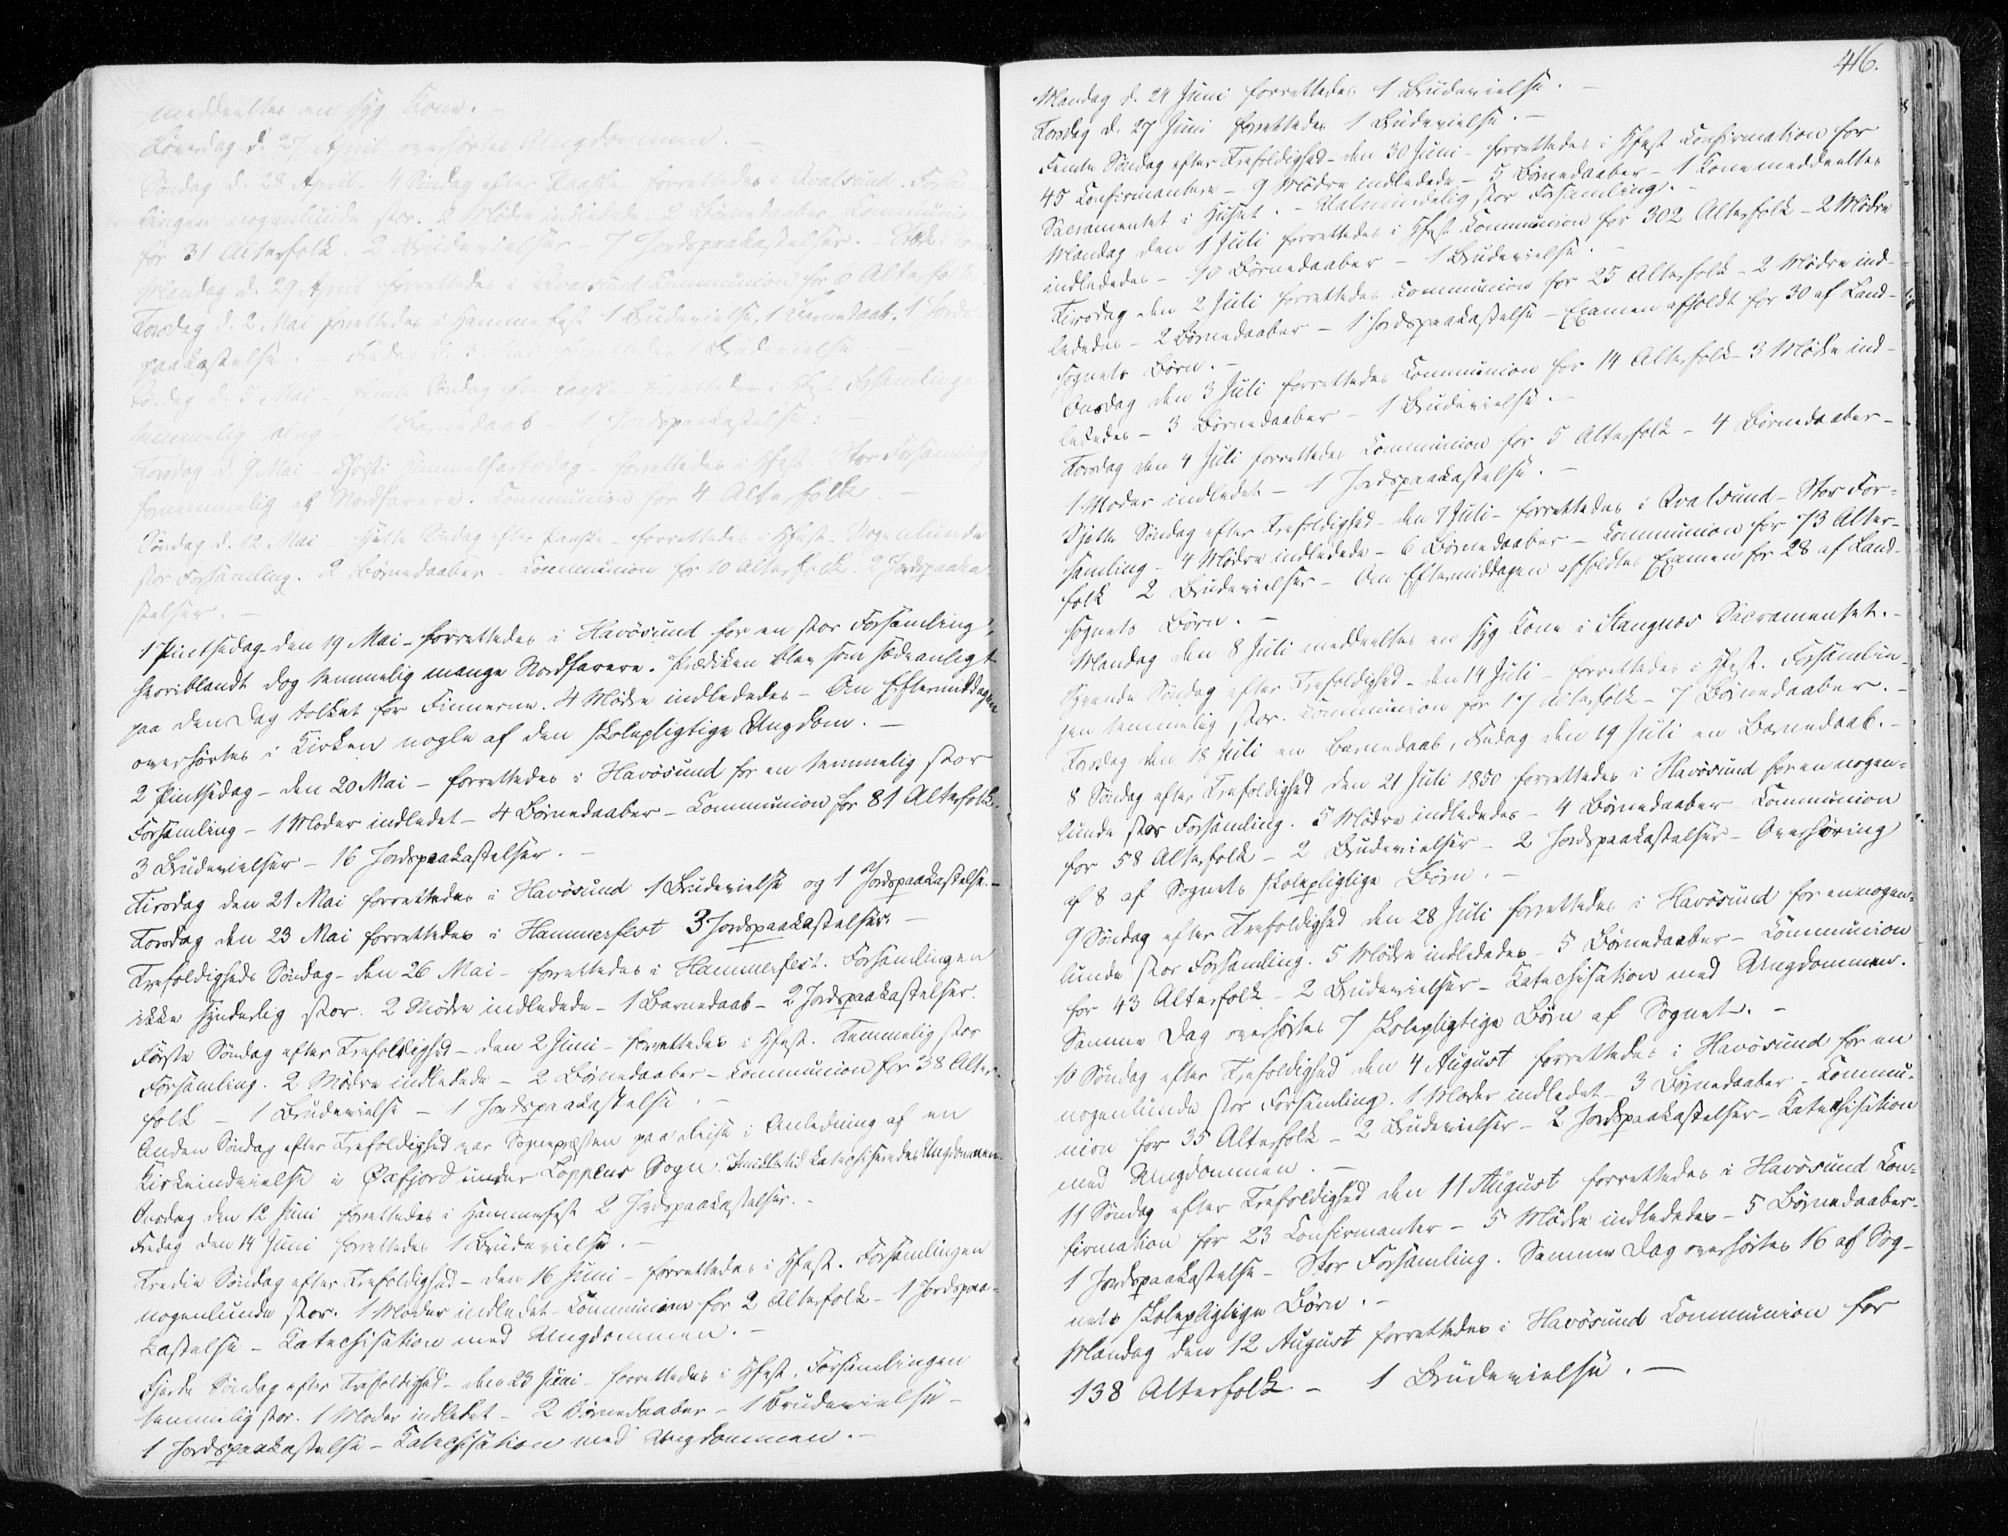 meddeeltes en syg Kone. –
Løverdag d. 27 April overhørtes Ungdommen. –
Søndag d. 28 April – 4 Søndag efter Paaske – forrettedes i Qvalsund. Forsam
lingen nogenlunde stor. 2 Mødre indledede. 2 Børnedaaber – Communion
for 31 Alterfolk. 2 Brudevielser – 7 Jordspaakastelser. –
Mandag d. 29 April forrettedes i Qvalsund Communion for 8 Alterfolk
Torsdag d. 2 Mai forrettedes i Hammerfest 1 Brudevielse, 1 Barnedaab, 1 Jords-
paakastelse. – Fredag d. 3 Mai forrettedes 1 Brudevielse –
Søndag d. 5 Mai – femte Søndag efter Paaske – Forsamlingen
temmelig – 1 Barnedaab – 1 Jordspaakastelse.
Torsdag d. 9 Mai – Christi Himmelfartsdag – forrettedes i Hfest. Stor Forsamling
fornemmelig af Nordfarere. Communion for 4 Alterfolk. –
Søndag d. 12 Mai – Sjette Søndag efter Paaske – forrettedes i Hfest. Nogenlunde
stor Forsamling. 2 Børnedaaber – Communion for 10 Alterfolk. 2 Jordspaaka
stelser. –
1 Pintsedag den 19 Mai – forrettedes i Havösund for en stor Forsamling,
hvoriblandt dog temmelig mange Nordfarere. Prædiken blev som sædvanligt
paa den Dag tolket for Finnerne. 4 Mødre indledede – Om Eftermiddagen
overhørtes i Kirken nogle af den skolepligtige Ungdom. –
2 Pintsedag – den 20 Mai – forrettedes i Havösund for en temmelig stor
Forsamling – 1 Moder indledet – 4 Børnedaaber – Communion for 81 Alterfolk.
3 Brudevielser – 16 Jordspaakastelser. –
Tirsdag den 21 Mai forrettedes i Havösund 1 Brudevielse og 1 Jordspaakastelse. –
Torsdag den 23 Mai forrettedes i Hammerfest 3 Jordspaakastelser. –
Trefoldigheds Søndag – den 26 Mai – forrettedes i Hammerfest. Forsamlingen
ikke synderlig stor. 2 Mødre indledede – 1 Barnedaab – 2 Jordspaakastelser.
Første Søndag efter Trefoldighed – den 2 Juni – forrettedes i Hfest. Temmelig stor
Forsamling. 2 Mødre indledede – 2 Børnedaaber – Communion for 38 Alter-
folk – 1 Brudevielse – 1 Jordspaakastelse. –
Anden Søndag efter Trefoldighed var Sognepræsten paa Reise i Anledning af en
Kirkeindvielse i Øxfjord under Loppens Sogn. Imidlertid Katechiseredes Ungdommen.
Onsdag den 12 Juni forrettedes i Hammerfest 2 Jordspaakastelser. –
Fredag den 14 Juni forrettedes 1 Brudevielse. –
Tredie Søndag efter Trefoldighed – den 16 Juni – forrettedes i Hfest. Forsamlingen
nogenlunde stor. 1 Moder indledet – Communion for 2 Alterfolk – 1 Jordspaa-
kastelse – Katechisation med Ungdommen. –
Fjerde Søndag efter Trefoldighed – den 23 Juni – forrettedes i Hfest. Forsamlingen
temmelig stor. 1 Moder indledet – 2 Børnedaaber – 1 Brudevielse –
1 Jordspaakastelse – Katechisation med Ungdommen. –
416.
Mandag d. 24 Juni forrettedes 1 Brudevielse. –
Torsdag d. 27 Juni forrettedes 1 Brudevielse. –
Femte Søndag efter Trefoldighed – den 30 Juni – forrettedes i Hfest Confirmation for
45 Confirmantere – 9 Mødre indledede – 5 Børnedaaber – 1 Kone meddeeltes
Sacramentet i Huset. – Ualmindelig stor Forsamling. –
Mandag den 1 Juli forrettedes i Hfest Communion for 302 Alterfolk – 2 Mødre
indledede – 10 Børnedaaber – 1 Brudevielse. –
Tirsdag den 2 Juli forrettedes Communion for 25 Alterfolk – 2 Mødre ind-
ledede – 2 Børnedaaber – 1 Jordspaakastelse – Examen afholdt for 30 af Land-
sognets Børn. –
Onsdag den 3 Juli forrettedes Communion for 14 Alterfolk – 3 Mødre ind-
ledede – 3 Børnedaaber – 1 Brudevielse. –
Torsdag den 4 Juli forrettedes Communion for 5 Alterfolk – 4 Børnedaaber –
1 Moder indledet – 1 Jordspaakastelse. –
Sjette Søndag efter Trefoldighed – den 7 Juli – forrettedes i Qvalsund – Stor For-
samling – 4 Mødre indledede – 6 Børnedaaber – Communion for 73 Alter-
folk 2 Brudevielser – Om Eftermiddagen afholdtes Examen for 28 af Land-
sognets Børn. –
Mandag den 8 Juli meddeeltes en syg Kone i Stangnæs Sacramentet. –
Syvende Søndag efter Trefoldighed – den 14 Juli – forrettedes i Hfest. Forsamlin-
gen temmelig stor. Communion for 17 Alterfolk – 7 Børnedaaber. –
Torsdag den 18 Juli en Barnedaab, Fredag den 19 Juli en Barnedaab. –
8 Søndag efter Trefoldighed den 21 Juli 1850 forrettedes i Havösund for en nogen-
lunde stor Forsamling. 5 Mødre indledede – 4 Børnedaaber – Communion
for 58 Alterfolk – 2 Brudevielser – 2 Jordspaakastelser – Overhøring
af 8 af Sognets skolepligtige Børn. –
9 Søndag efter Trefoldighed den 28 Juli forrettedes i Havösund for en nogen-
lunde stor Forsamling. 5 Mødre indledede – 5 Børnedaaber – Communion
for 43 Alterfolk – 2 Brudevielser – Katechisation med Ungdommen.
Samme Dag overhørtes 7 skolepligtige Børn af Sognet. –
10 Søndag efter Trefoldighed den 4 August forrettedes i Havösund for en
nogenlunde stor Forsamling. 1 Moder indledet – 3 Børnedaaber – Commu-
nion for 35 Alterfolk – 2 Brudevielser – 2 Jordspaakastelser – Katechisation
med Ungdommen. –
11 Søndag efter Trefoldighed den 11 August forrettedes i Havösund Con-
firmation for 23 Confirmanter – 5 Mødre indledede – 5 Børnedaaber –
1 Jordspaakastelse – Stor Forsamling. Samme Dag overhørtes 16 af Sog-
nets skolepligtige Børn. –
Mandag den 12 August forrettedes i Havösund Communion for
138 Alterfolk – 1 Brudevielse. –